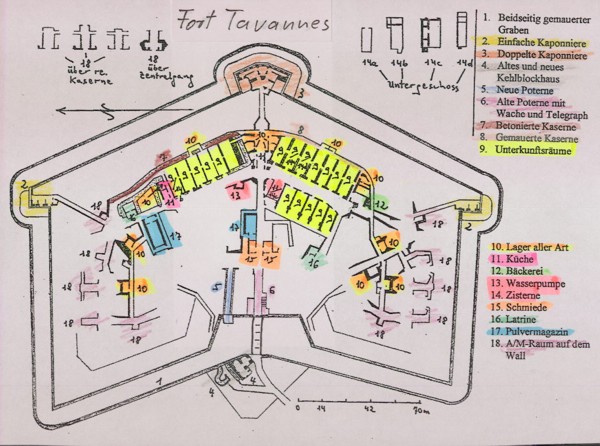 Fort Tavannes
18
über re.
Kaserne
18
über
Zentralgang
14a
14b
14c
14d
Untergeschoss
1. Beidseitig gemauerter
Graben
2. Einfache Kaponniere
3. Doppelte Kaponniere
4. Altes und neues
Kehlblockhaus
5. Neue Poterne
6. Alte Poterne mit
Wache und Telegraph
7. Betonierte Kaserne
8. Gemauerte Kaserne
9. Unterkunftsräume
10. Lager aller Art
11. Küche
12. Bäckerei
13. Wasserpumpe
14. Zisterne
15. Schmiede
16. Latrine
17. Pulvermagazin
18. A/M-Raum auf dem
Wall
3
7
10
10
8
10
10
2
2
13
12
17
17
16
15
15
10
10
10
10
18
18
18
18
18
18
18
18
5
6
1
4
4
0 14 42 70m